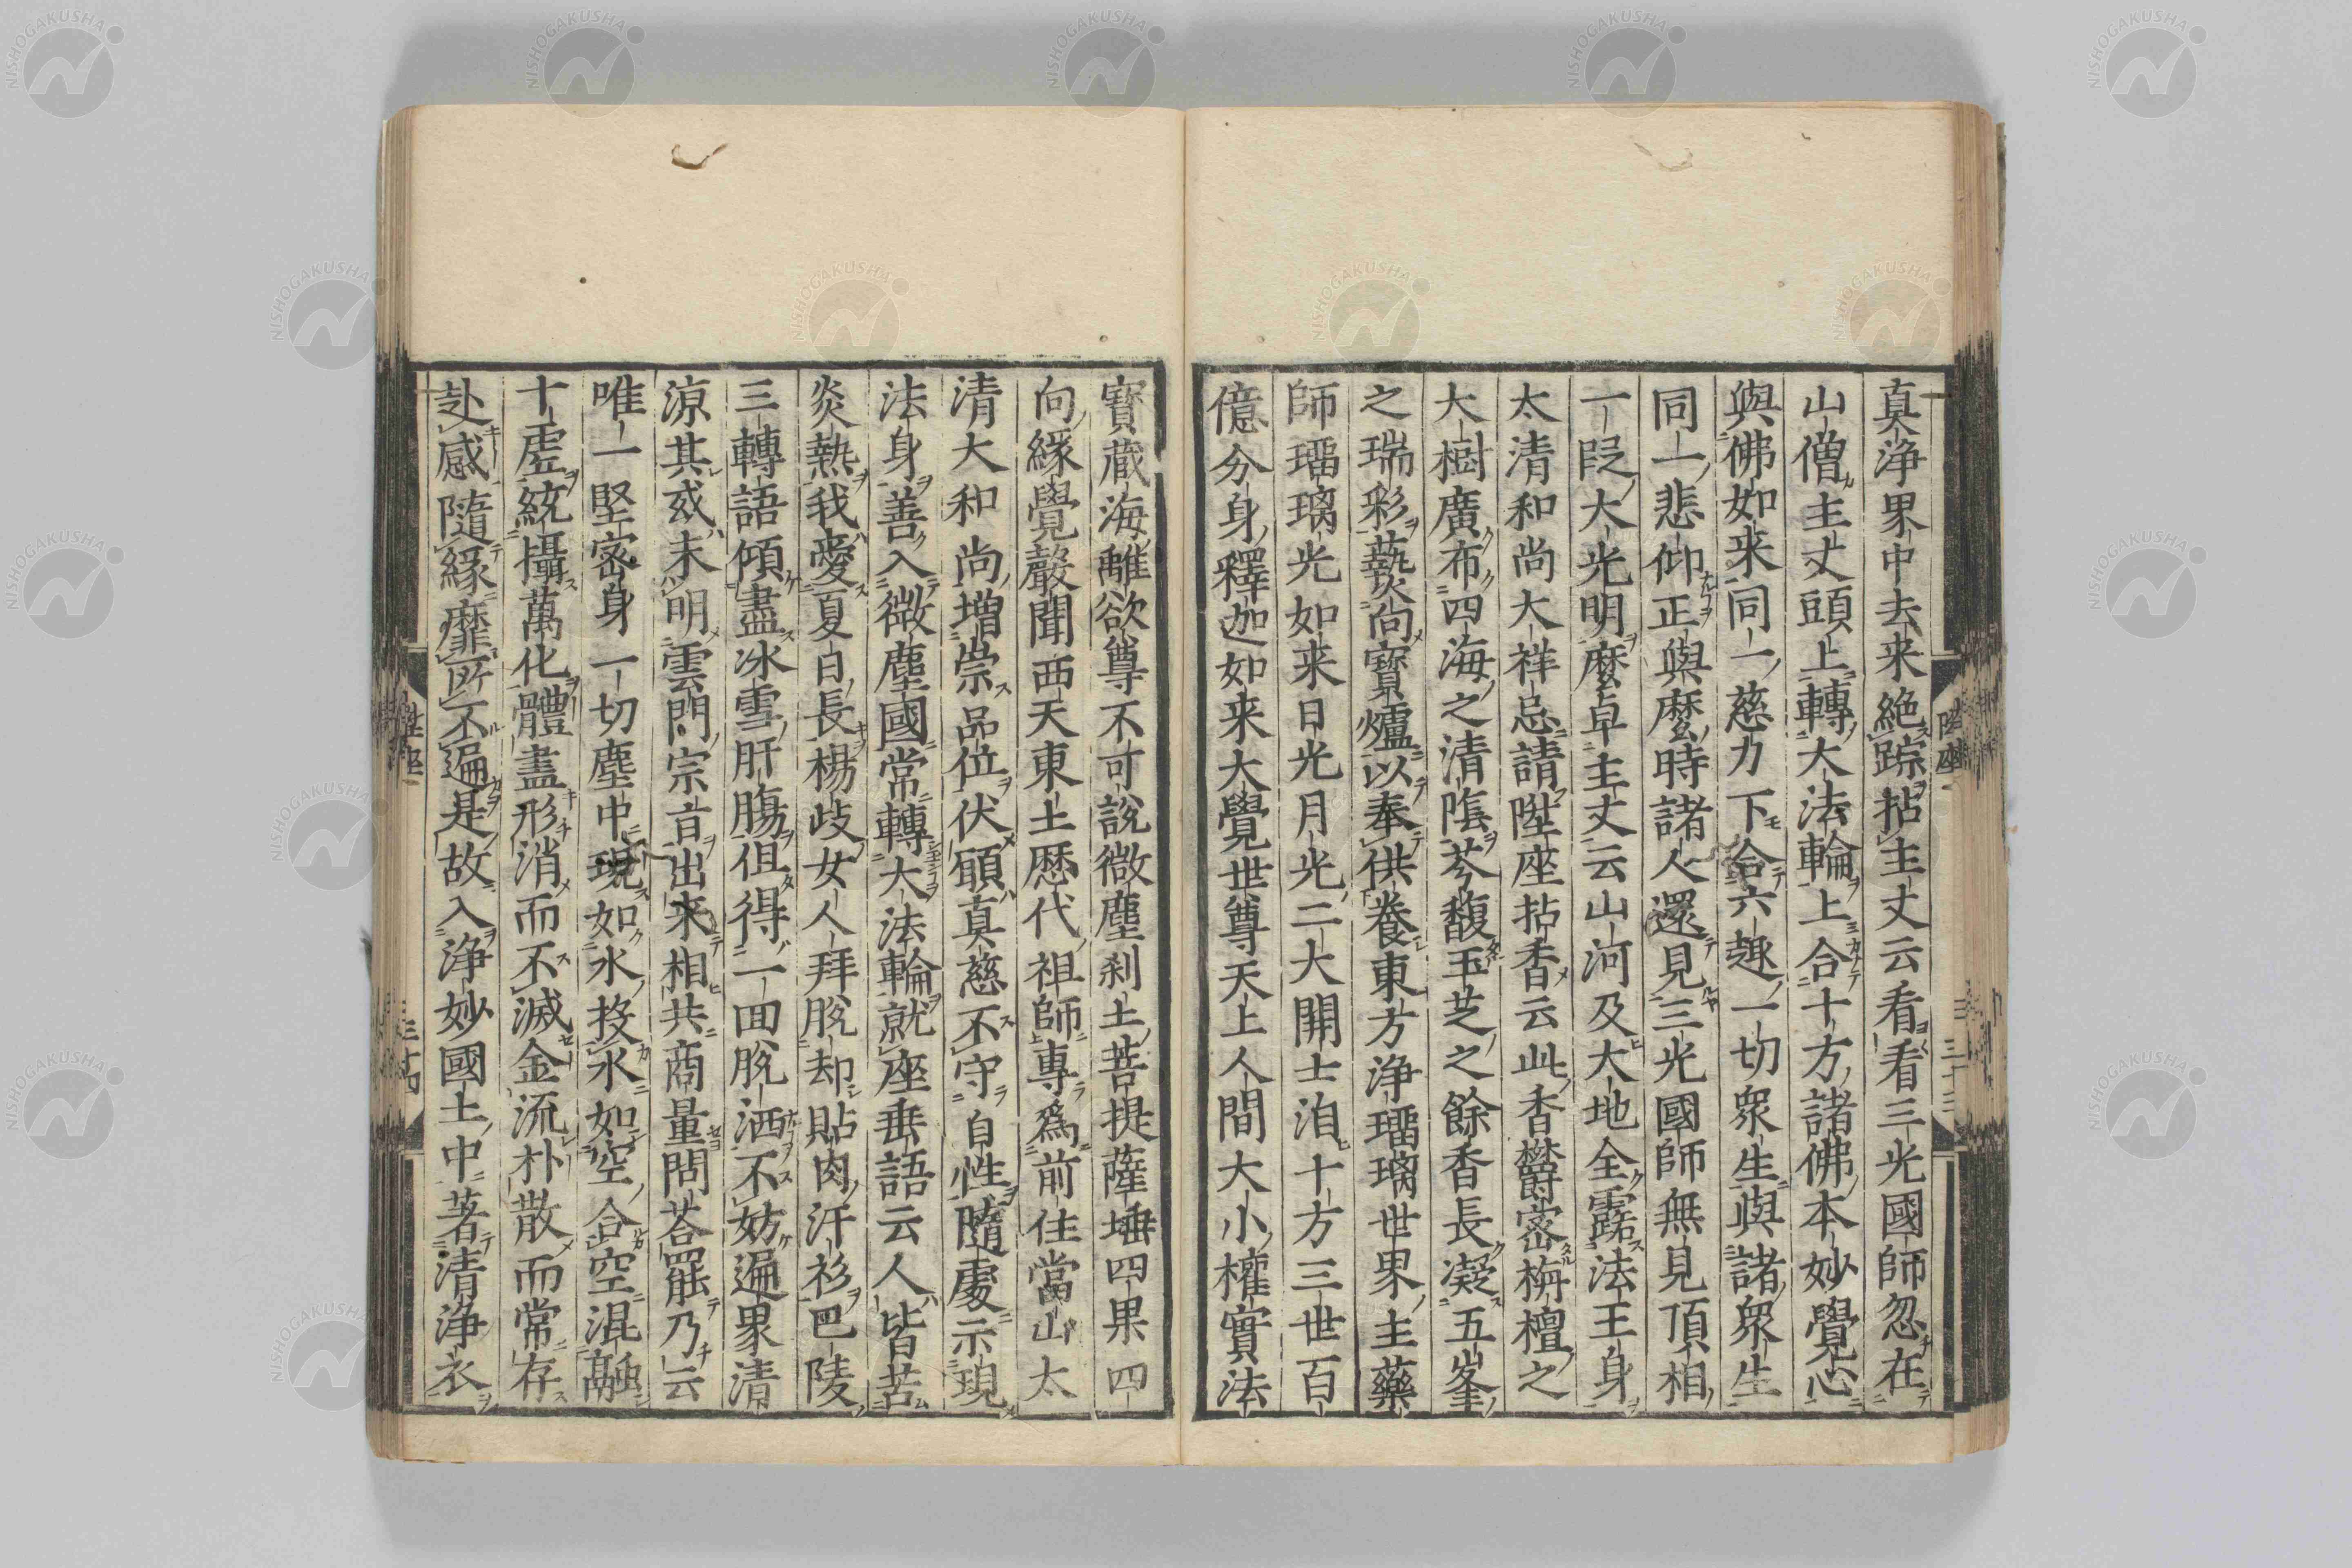 真淨界中去来絶踪拈主丈云看看三光國師忽在
山僧主丈頭上轉大法輪上合十方諸佛本妙覺心
與佛如来同一慈力下合六趣一切衆生與諸衆生
同一悲仰正與麼時諸人還見三光國師無見頂相
一段大光明麼卓主丈云山河及大地全露法王身
太清和尚大祥忌請陞座拈香云此香欝密栴檀之
大樹廣布四海之清陰芩馥玉芝之餘香長凝五峯
之瑞彩爇向寳爐以奉供養東方淨瑠璃世界主藥
師瑠璃光如来日光月光二大開士洎十方三世百
億分身釋迦如来大覺世尊天上人間大小權實法
寳藏海離欲尊不可說微塵刹土菩提薩埵四果四
向緣覺嚴聞西天東土歷代祖師專爲前住當山太
清大和尚增崇品位伏願真慈不守自性隨處示現
法身善入微塵國常轉大法輪就座垂語云人皆苦
炎熱我愛夏日長楊歧女人拜脫却貼肉汗衫巴陵
三轉語傾盡冰雪肝膓但得一回脫洒不妨遍界清
凉其或未明雲門宗旨出来相共商量問荅罷乃云
唯一堅密身一切塵中現如水投水如空合空混融
十虛統攝萬化體盡形消而不滅金流朴散而常存
赴感隨緣靡所不遍是故入淨妙國土中著清淨衣
NISHOGAKUSHA